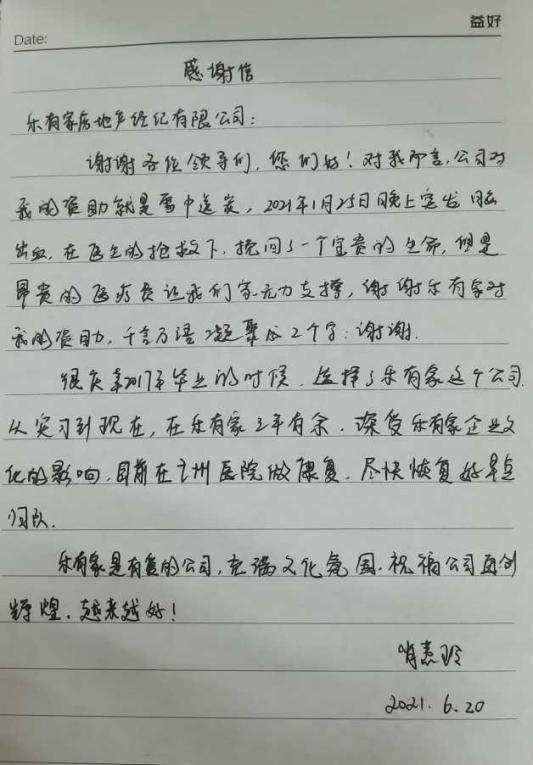 益好
Date:
感谢信
乐有家房地产经纪有限公司：
谢谢各位领导们，您们好！对我而言，公司对
我的资助就是雪中送炭，2021年1月25日晚上突发脑
出血，在医生的抢救下，挽回了一个宝贵的生命，但是
昂贵的医疗费让我们家无力支撑，谢谢乐有家对
我的资助，千言万语凝聚成2个字：谢谢.
很庆幸2017年毕业的时候，选择了乐有家这个公司.
从实习到现在，在乐有家3年有余．深受乐有家企业文
化的影响，目前在广州医院做康复．尽快恢复好早点
归队.
乐有家是有爱的公司，充满文化氛围．祝福公司再创
辉煌．越来越好！
肖惠玲
2021.6.20